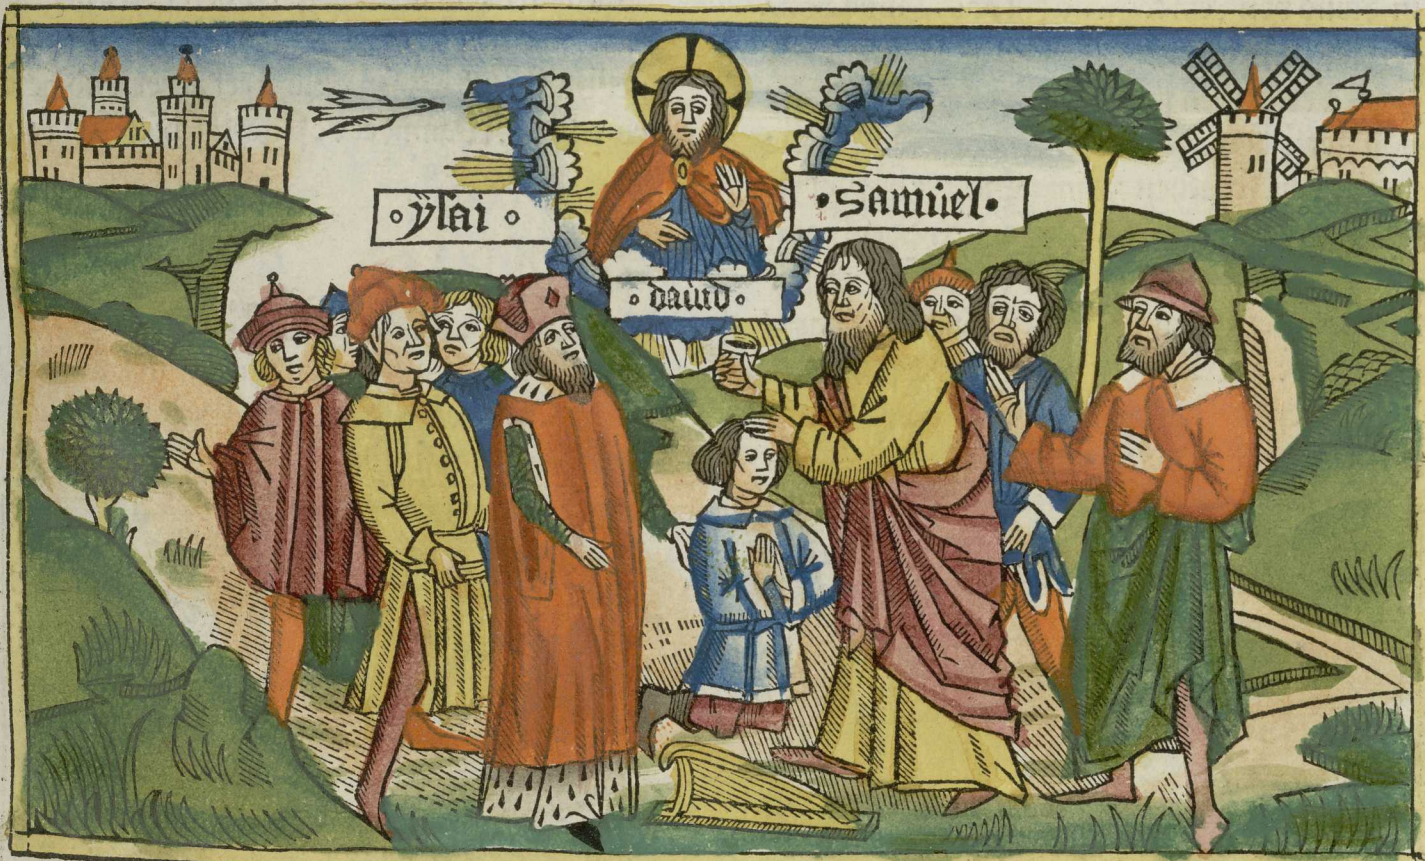 ÿsai
Samuel
dauid